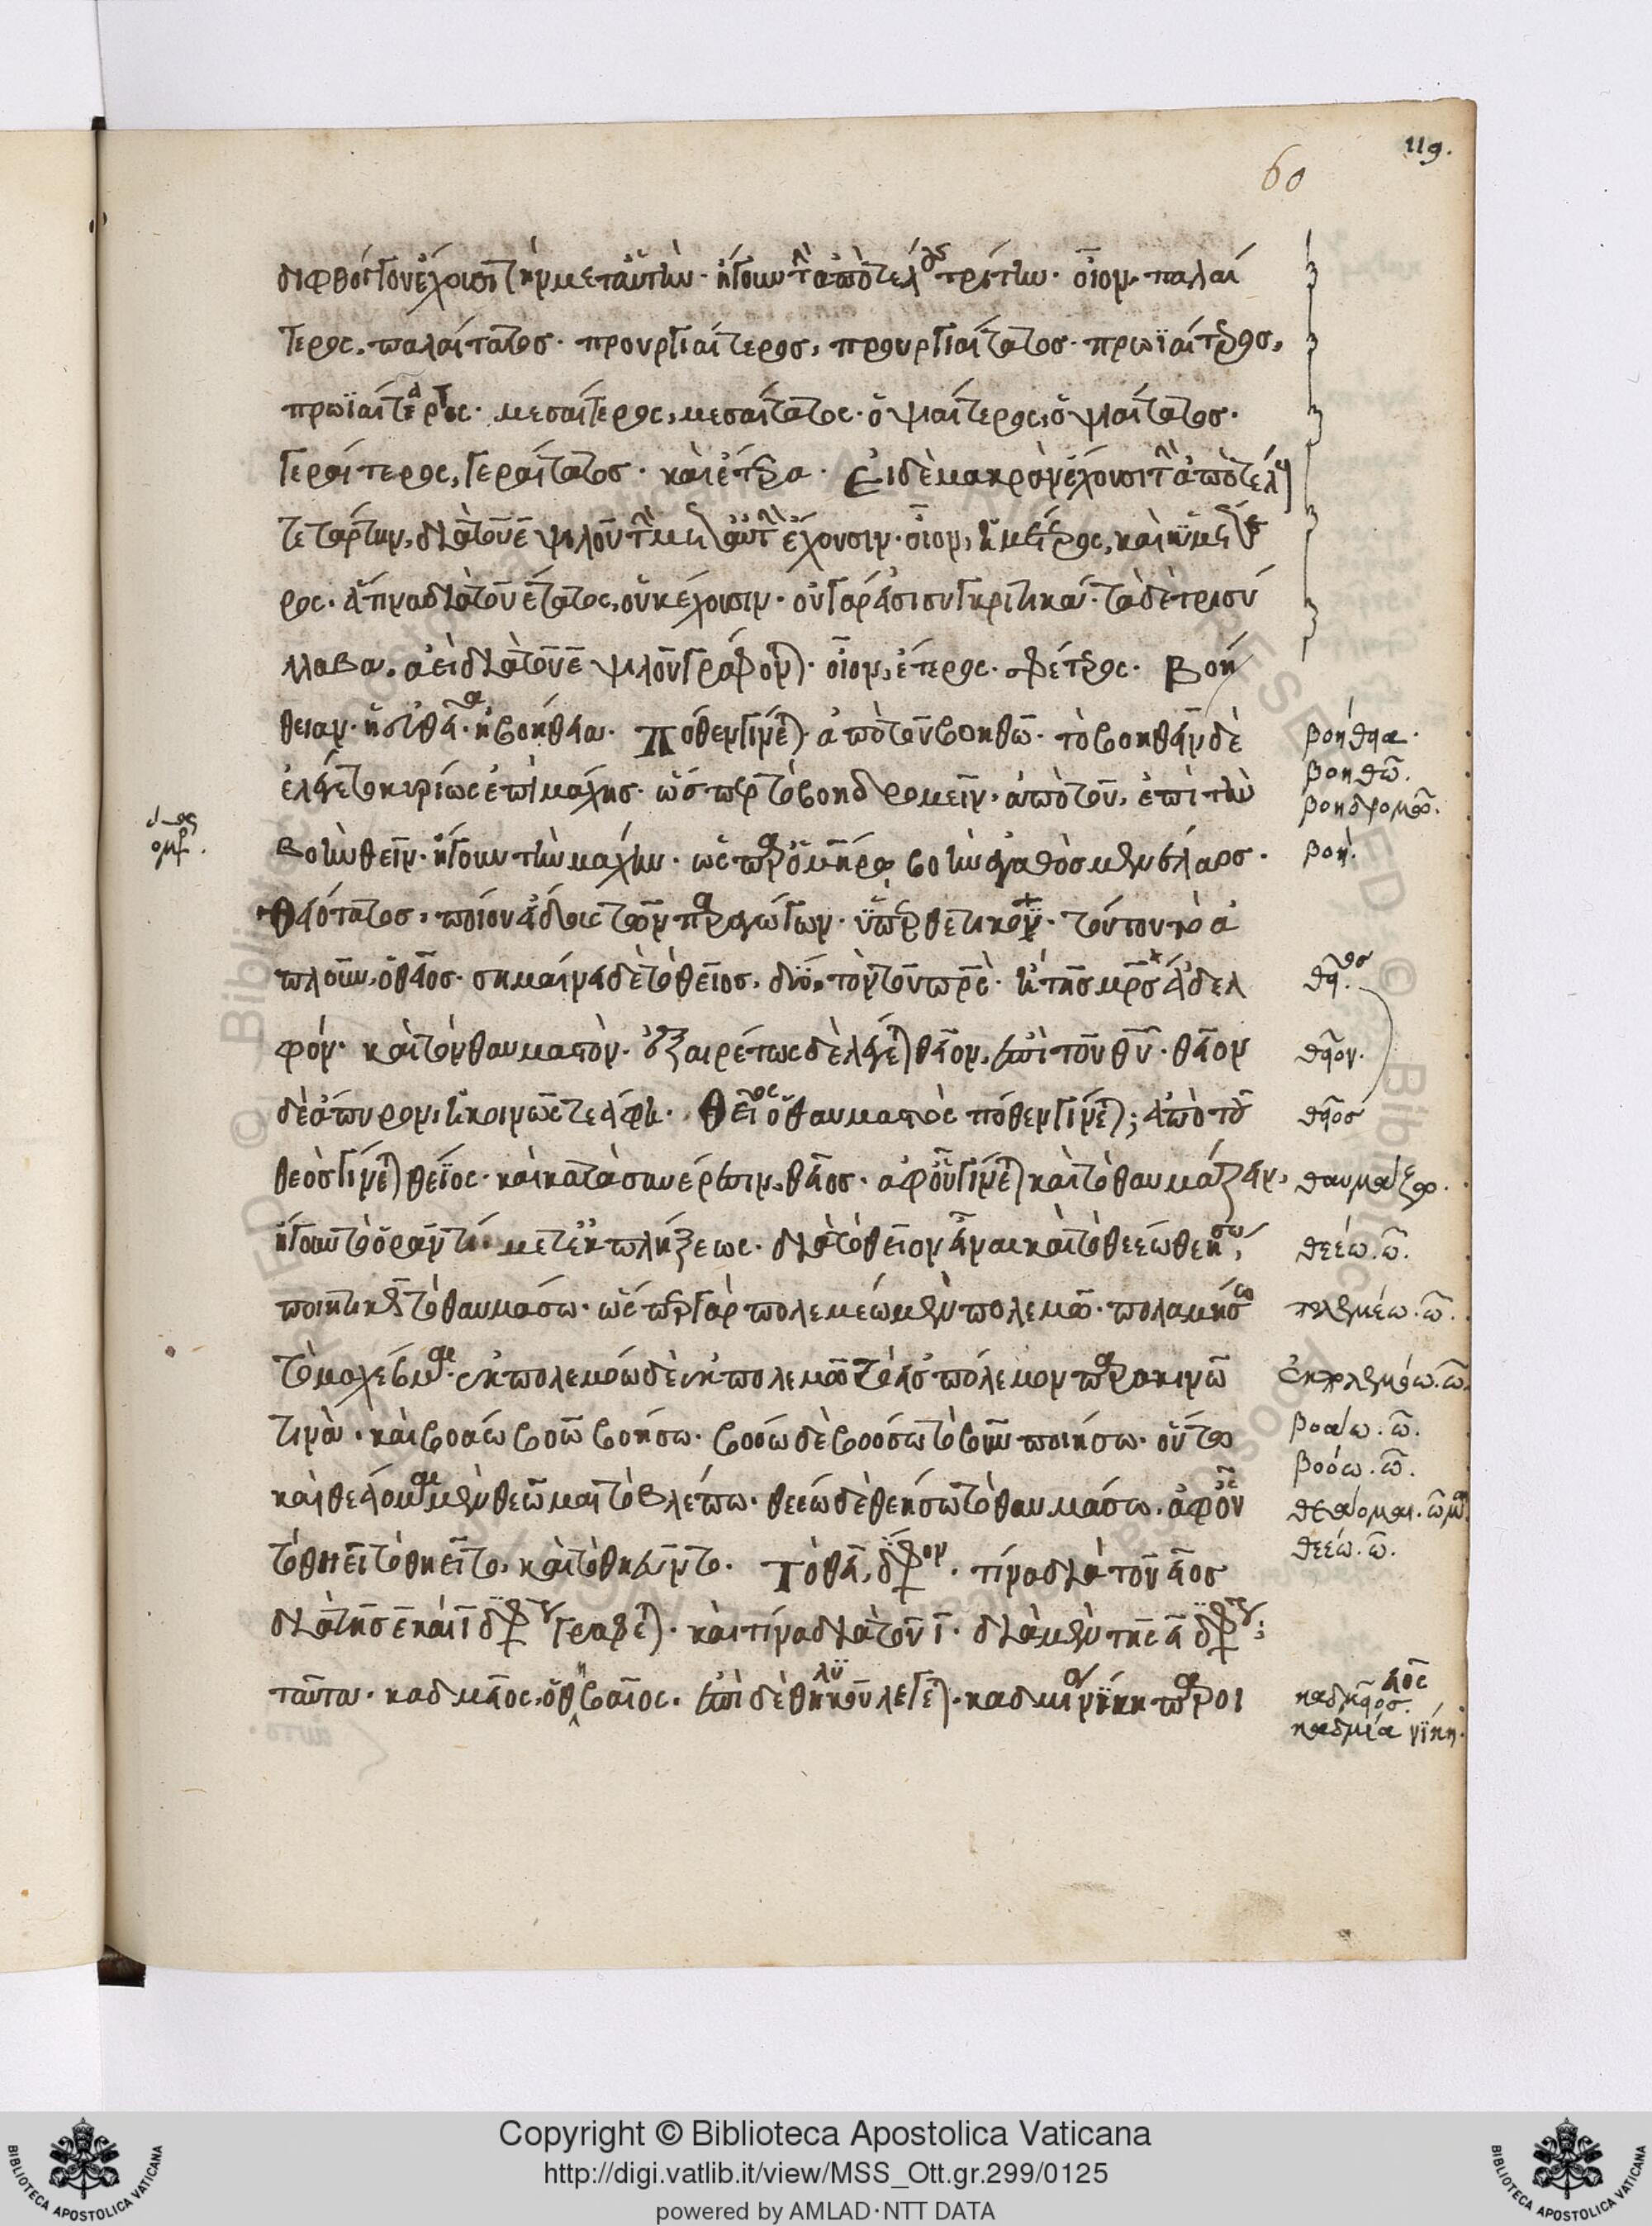 119.
60
δίφθογγον ἔχουσι τὴν μετ αὐτὴν· ἤγουν τὴν ἀπὸ τέλους τρίτην· οἷον παλαί
τερος, παλαίτατος· προυργιαίτερος, προυργιαίτατος· πρωϊαίτερος,
πρωϊαίτατος· μεσαίτερος, μεσαίτατος· ὀψιαίτερος, ὀψιαίτατος·
γεραίτερος, γεραίτατος· καὶ ἕτερα· Εἰ δὲ μακρὰν ἔχουσι τὴν ἀπὸ τέλους
τετάρτην, διὰ τοῦ ε ψιλοῦ τὴν μετ αὐτὴν ἔχουσιν· οἷον, ἡμέτερος, καὶ ὑμέτε
ρος· ἅτινα διὰ τοῦ ετατος, οὐκ ἔχουσιν· οὐ γάρ εἰσι συγκριτικά· τὰ δὲ τρισύ
λλαβα, ἀεὶ διὰ τοῦ ε ψιλοῦ γράφονται· οἷον, ἕτερος· φέτερος· Βοή
θειαν· ἡ εὐθεῖα· ἡ βοήθεια· Πόθεν γίνεται· ἀπὸ τοῦ βοηθῶ· τὸ βοηθεῖν δὲ
ἐλέγετο κυρίως ἐπὶ μάχης· ὥσπερ τὸ βοηδρομεῖν· ἀπὸ τοῦ, ἐπὶ τὴν
βοὴν θεῖν· ἤγουν τὴν μάχην· ὡς παρ Ὁμήρῳ βοὴν ἀγαθὸς μενέλαος·
Θειότατος, ποῖον εἶδος τῶν παραγώγων· ὑπερθετικόν· τούτου τὸ ἁ
πλοῦν, ὁ θεῖος· σημαίνει δὲ τὸ θεῖος, δύο, τὸν τοῦ πρς· ἢ τῆς μρς ἀδελ
φόν· καὶ τὸν θαυμαστόν· ἐξαιρέτως δὲ λέγεται θεῖον, ἐπὶ τοῦ θυ· θεῖον
δὲ ἄπυρον, ἡ κοινῶς τεάφη· Θεῖος ὁ θαυμαστὸς πόθεν γίνεται; ἀπὸ τοῦ
θεὸς γίνεται θέϊος· καὶ κατὰ συναίρεσιν, θεῖος· ἀφ οὗ γίνεται καὶ τὸ θαυμάζειν,
ἤγουν τὸ ὁρᾶν τι μετ ἐκπλήξεως· διὰ τὸ θεῖον εἶναι καὶ τὸ θεέω θεήσω,
ποιητικῶς τὸ θαυμάσω· ὥσπερ γὰρ πολεμέω μὲν πολεμῶ· πολεμήσω
τὸ μαχέσομαι· ἐκπολεμόω δὲ ἐκπολεμῶ τὸ εἰς πόλεμον παρακινῶ
τινὰ· καὶ βοάω βοῶ βοήσω· βοόω δὲ βοόσω τὸ βοῦν ποιήσω· οὕτω
καὶ θεάομαι μὲν θεῶμαι τὸ βλέπω· θεέω δὲ θεήσω τὸ θαυμάσω, ἀφ οὗ
τὸ θηεῖτο θηεῖτο, καὶ τὸ θηεῦντο· Τὸ θεῖ, δίφθογγον· τίνα διὰ τοῦ ειος
διὰ τῆς ε καὶ ι διφθόγγου γράφεται· καὶ τίνα διὰ τοῦ ι· διὰ μὲν τῆς ει διφθόγγου
ταῦτα· καδμεῖος, ὁ θηβαῖος· ἐπὶ δὲ θηλυκοῦ λέγεται, καδμεία νίκη παροι
ὁμήρ.
βοήθεια.
βοηθῶ.
βοηδρομῶ.
βοή.
θεῖος.
θεῖον.
θεῖος
θαυμάζω.
θεέω. ῶ.
πολεμέω. ῶ.
ἐκπολεμόω. ῶ.
βοάω. ῶ.
βοόω. ῶ.
θεάομαι. ῶμαι
θεέω. ῶ.
ειος
καδμεῖος.
καδμεία νίκη.
Copyright © Biblioteca Apostolica Vaticana
http://digi.vatlib.it/view/MSS_Ott.gr.299/0125
powered by AMLAD·NTT DATA
BIBLIOTECA APOSTOLICA VATICANA
BIBLIOTECA APOSTOLICA VATICANA